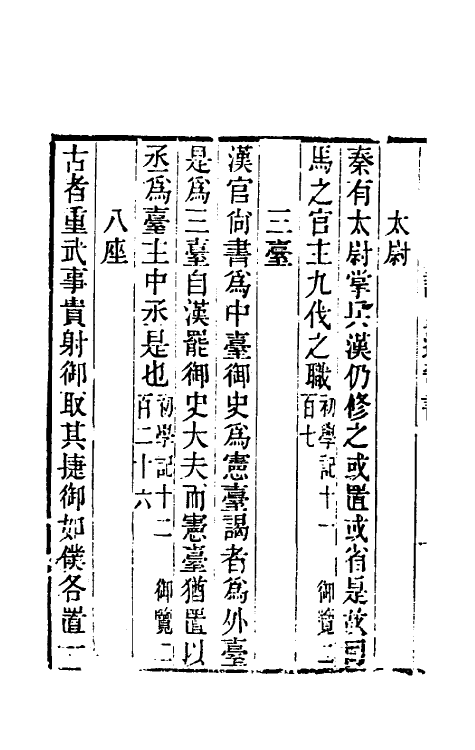 太尉
秦有太尉掌兵漢仍修之或置或省是故司
馬之官主九伐之職初學記十一 御覽二百七
三臺
漢官尚書爲中臺御史爲憲臺謁者爲外臺
是爲三臺自漢罷御史大夫而憲臺猶置以
丞爲臺主中丞是也初學記十二 御覽二百二十六
八座
古者重武事貴射御取其捷御如僕各置一